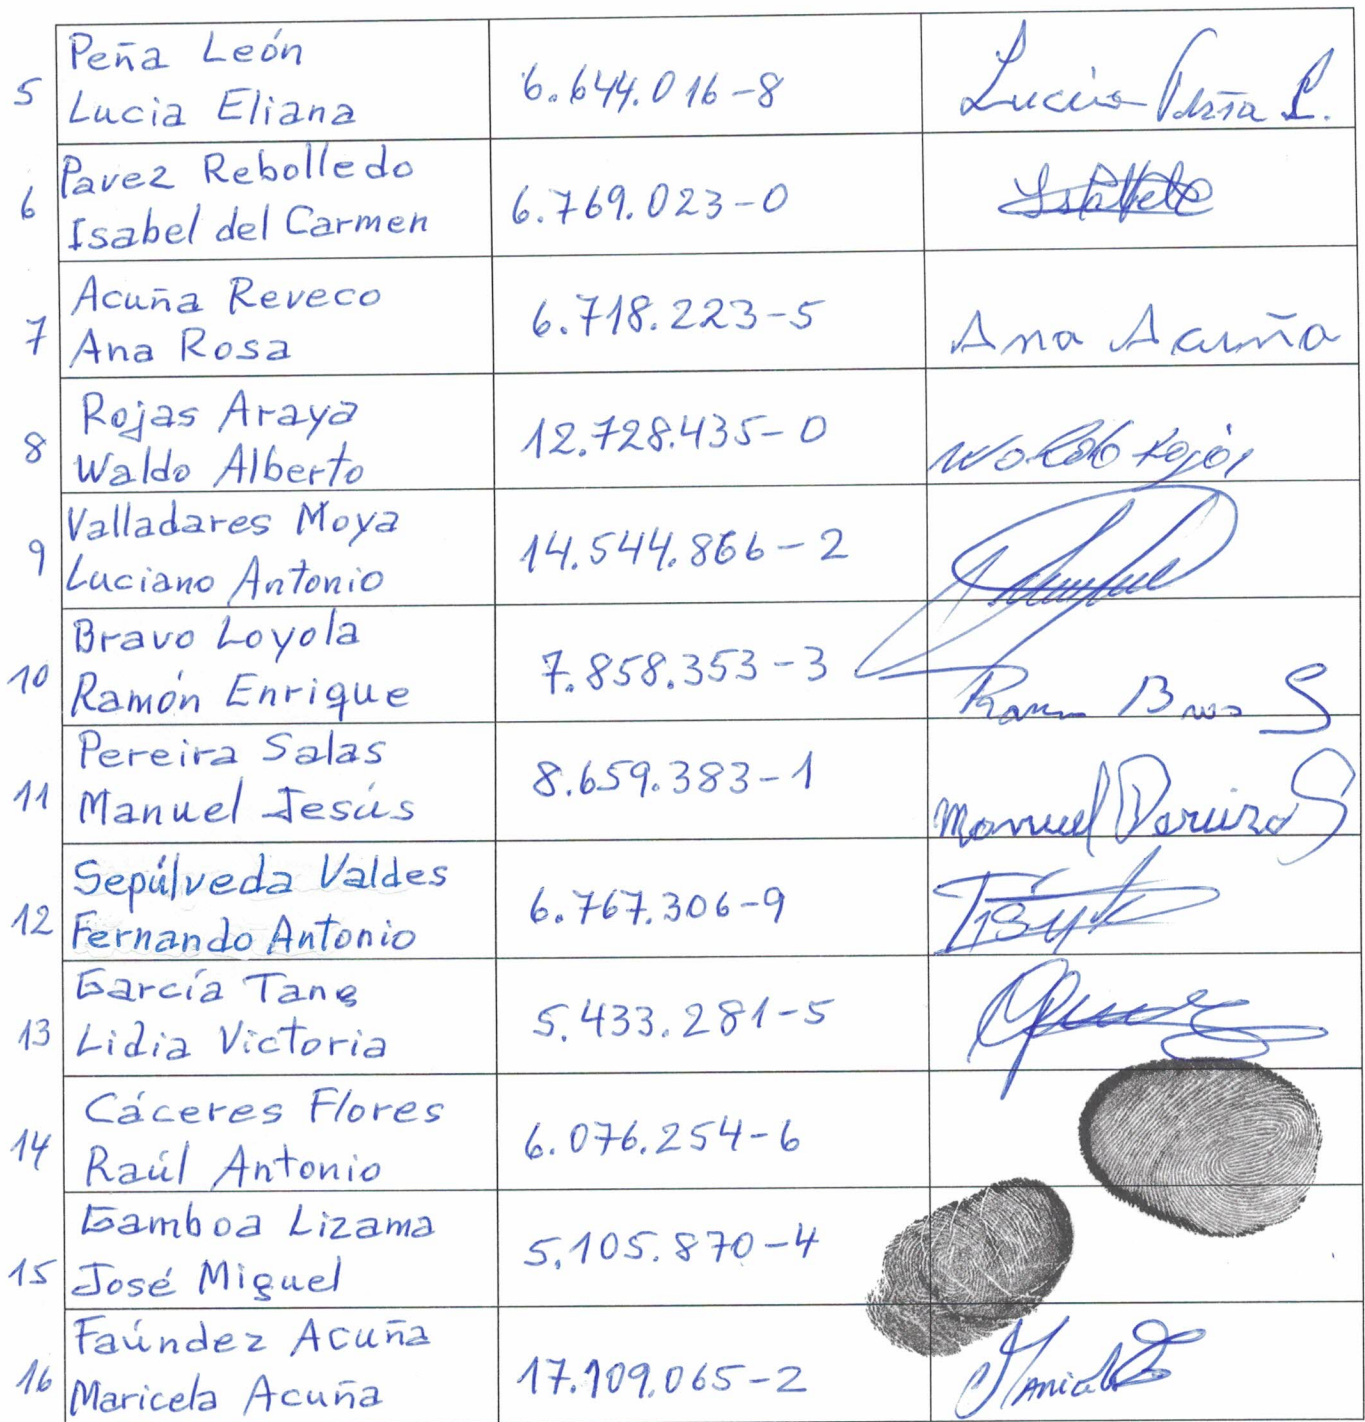 5 Peña León
Lucia Eliana
6.644.016-8
Lucia Peña L.
6 Pavez Rebolledo
Isabel del Carmen
6.769.023-0
7 Acuña Reveco
Ana Rosa
6.718.223-5
Ana Acuña
8 Rojas Araya
Waldo Alberto
12.728.435-0
Waldo Rojas
9 Valladares Moya
Luciano Antonio
14.544.866-2
10 Bravo Loyola
Ramón Enrique
7.858.353-3
11 Pereira Salas
Manuel Jesús
8.659.383-1
Manuel Pereira S
12 Sepúlveda Valdes
Fernando Antonio
6.767.306-9
13 García Tang
Lidia Victoria
5.433.281-5
14 Cáceres Flores
Raúl Antonio
6.076.254-6
15 Gamboa Lizama
José Miguel
5.105.870-4
16 Faúndez Acuña
Maricela Acuña
17.109.065-2